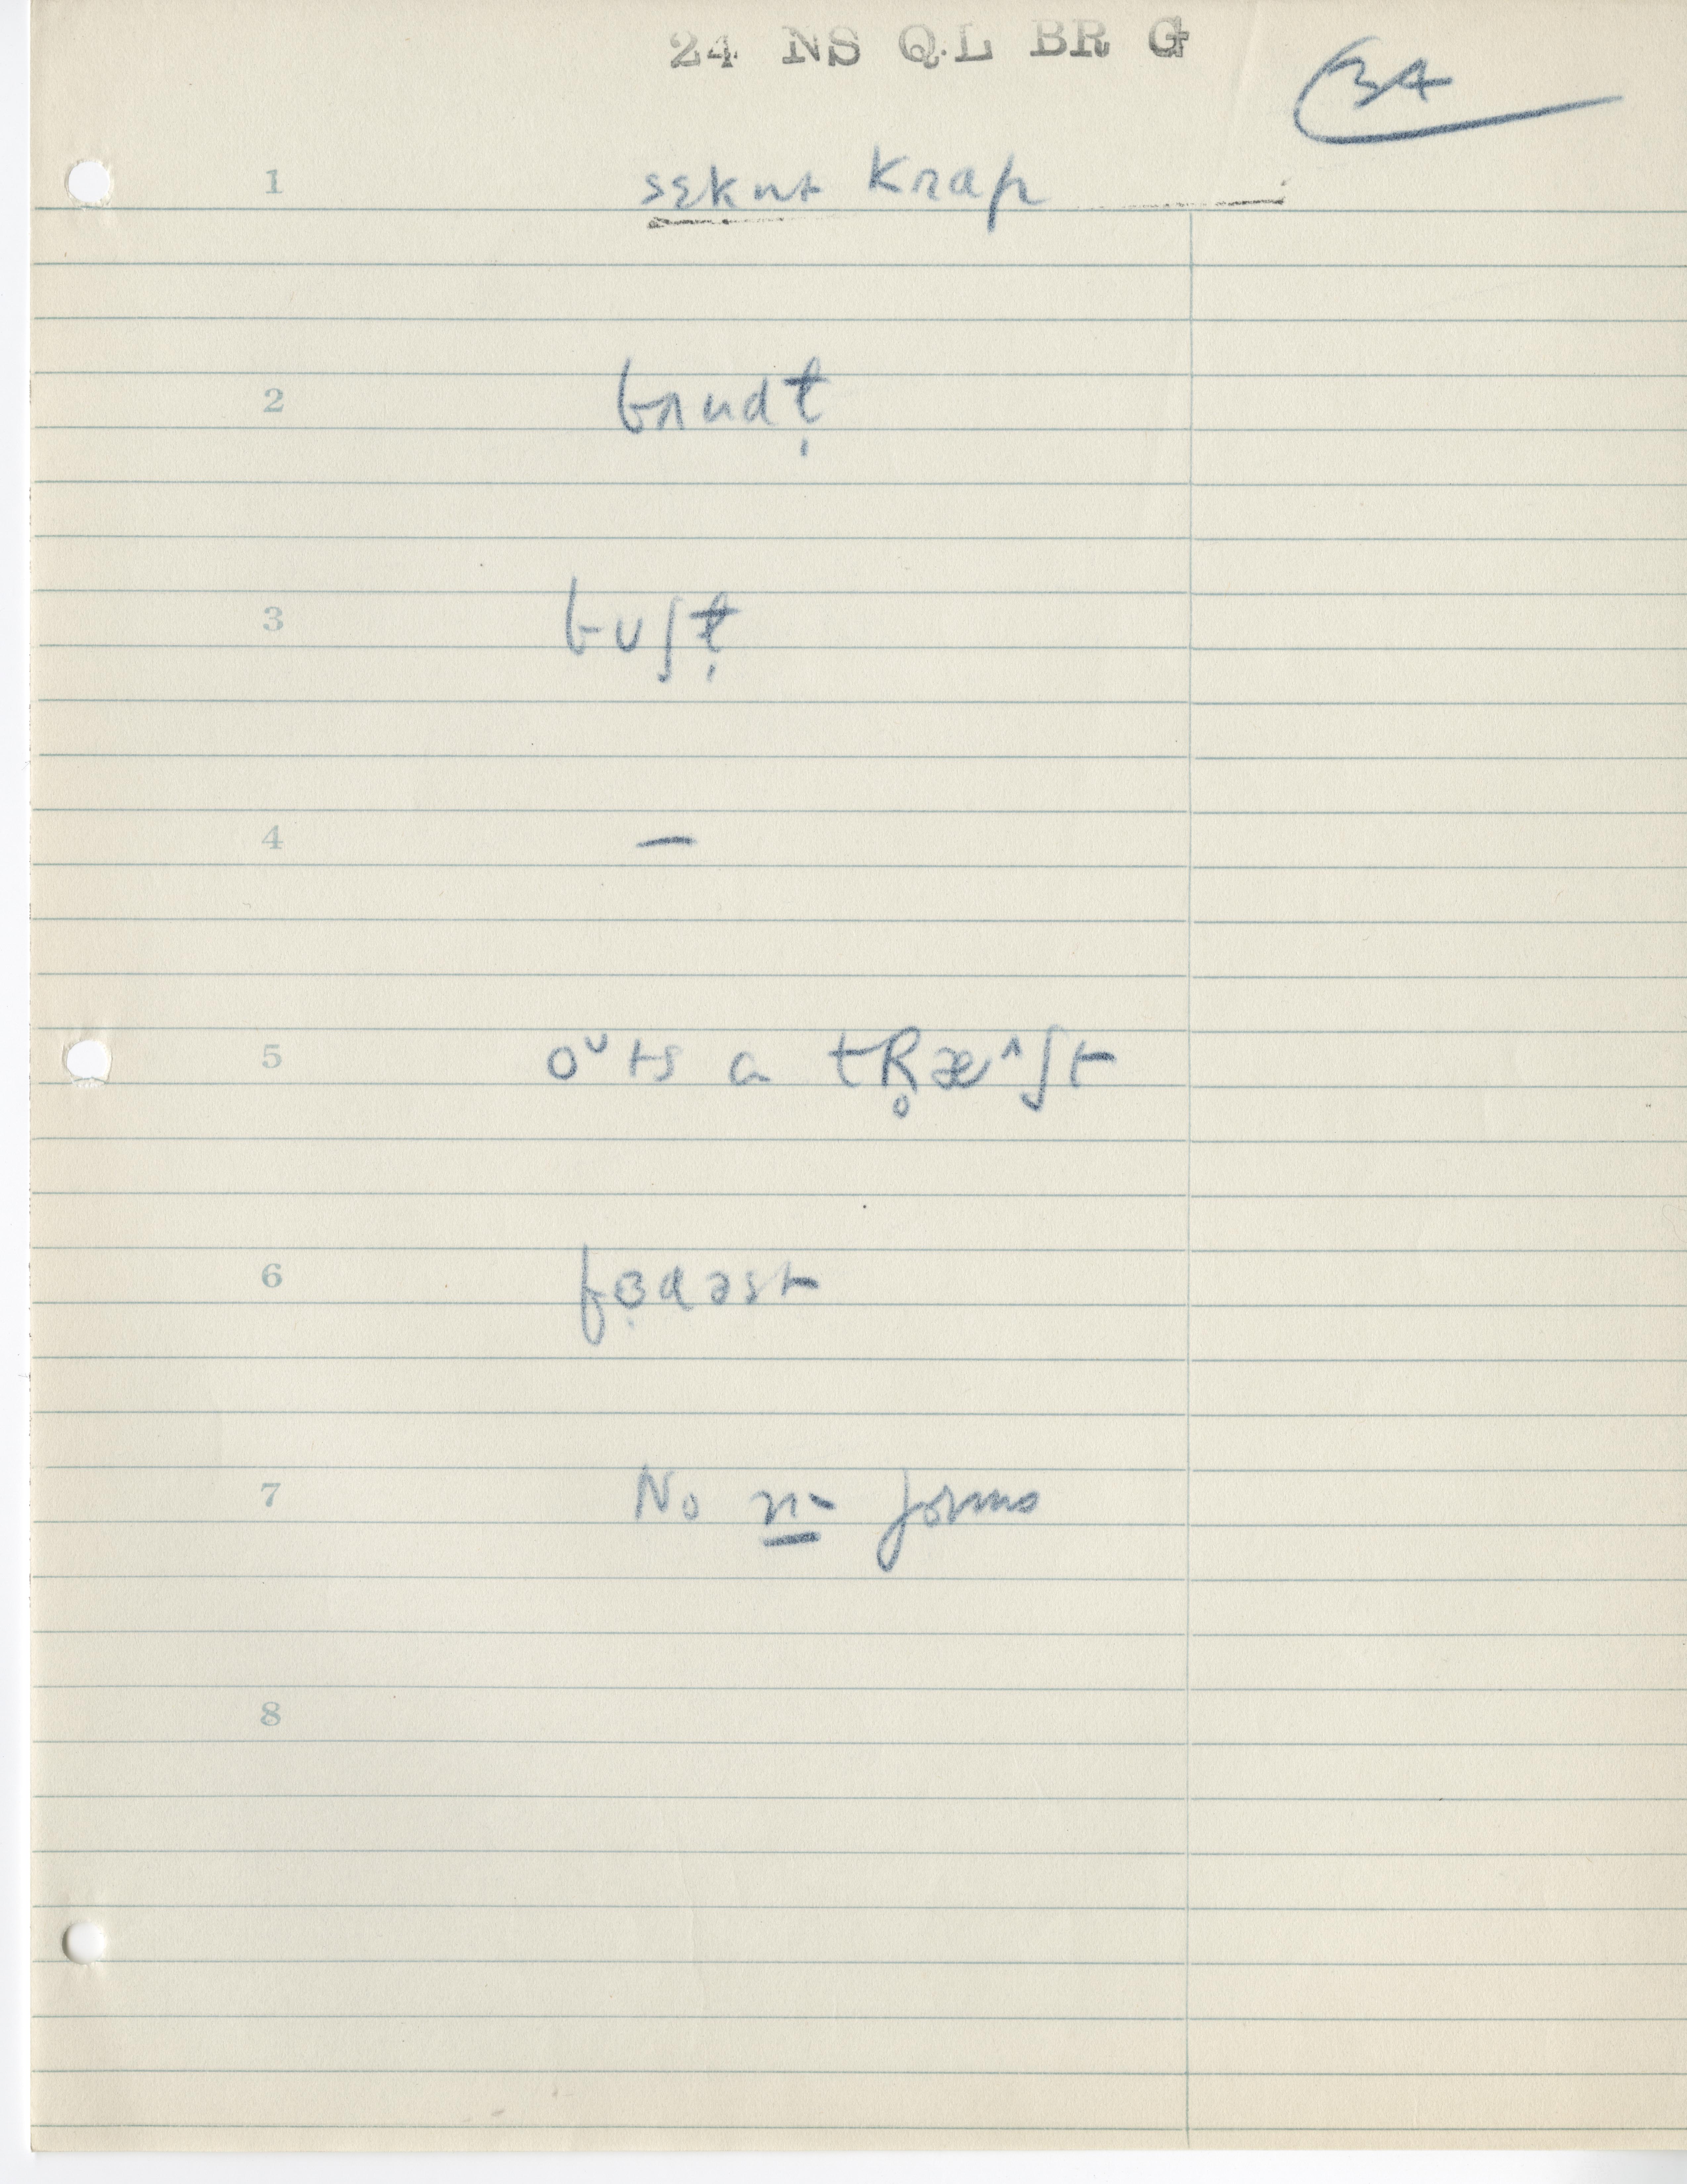 24 NS QL BR G
34
1 sɛknt krap
2 bʌndl̩
3 bʊʃl̩
4 —
5 oᵘts a tR̥æ^ʃt
6 fɜ̣dəst
7 No n- forms
8